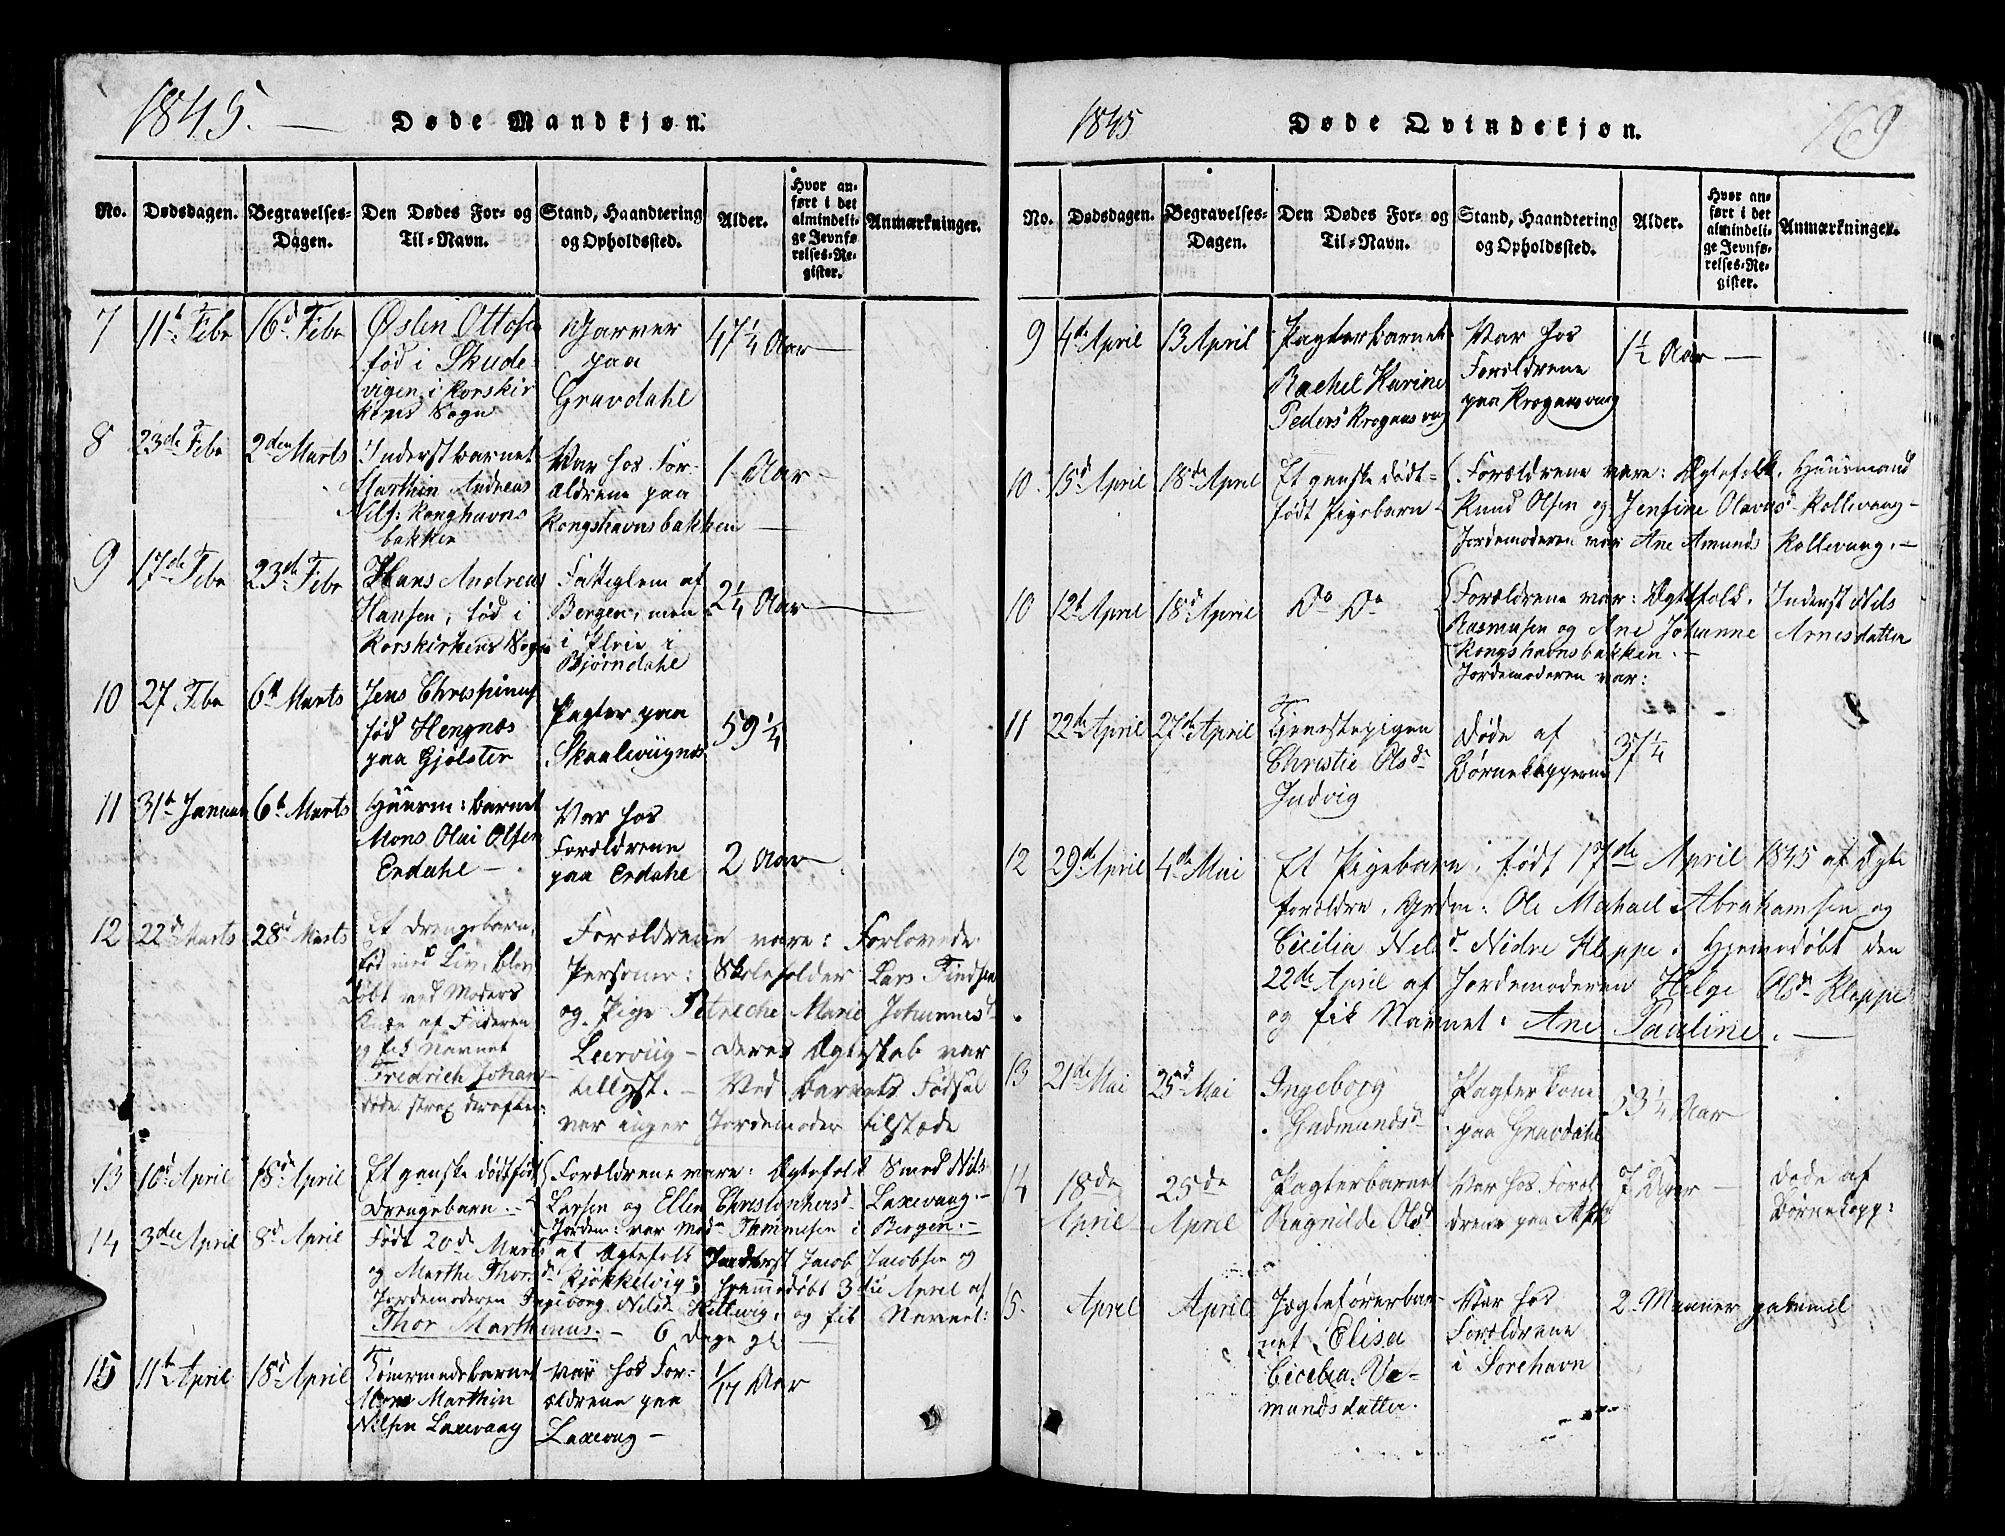 1845.
Døde Mandkjøn.
No.
Dødsdagen.
Begravelses-
Dagen.
Den Dødes For- og
Til-Navn.
Stand, Haandtering
og Opholdssted.
Alder.
Hvor an-
ført i det
almindeli-
ge Jevnfø-
relses-Re-
gister.
Anmærkninger.
7
11t Febr
16d Febr
Østen Ottosen
fød i Skude-
vigen i Korskir
kens Sogn
Garver
paa
Gravdahl
47 1/4 Aar
8
23de Febr
2den Marts
Inderstbarnet
Marthin Andreas
Nils: Konghavns
bakken
Var hos For-
ældrene paa
Kongshavnsbakken
1 Aar
9
17de Febr
23de Febr
Hans Andreas
Hansen, fød i
Korskirkens Sogn
Fattiglem af
Bergen, men
i Pleie i
Bjørndahl
2 1/4 Aar
10
27 Febr
6t Marts
Jens Christinus
fød Hengnæs
paa Gjølster
Pagter paa
Skaaleviignes
59 1/4
11
31t Januar
6t Marts
Huusm: barnet
Mons Olai Olsen
Erdahl
Var hos
Forældrene
paa Erdahl
2 Aar
12
22d Marts
28d Marts
Et Drengebarn,
fød med Liv, blev
døbt ved Moders
Knæe af Faderen
og fik Navnet
Fredrich Johan
døde strax derefter
Forældrene vare: Forlovede
Personer: Skoleholder Lars Findsen
og Pige Petreche Marie Johannesd
Leerviig - deres Ægteskab var
tillyst. - Ved Barnets Fødsel
var inger Jordemoder tilstæde
13
10d April
18d April
Et ganske dødtfødt
Drengebarn. -
Forældrene vare: Ægtefolk Smed Nils
Larsen og Ellen Christophersd Laxevaag. -
Jordem: var Mad. Tammesen i Bergen. -
14
3die April
8d April
Født 20de Marts af Ægtefolk Inderst Jacob Jacobsen og
og Marthe Thorsd Kjøkkelvig; hjemmedøbt 3die April af
Jordemoderen Ingeborg Nilsd Hettevig, og fik Navnet:
Thor Marthinus. - 6 Dage gl.
15
11t April
18d April
Tømermandsbarnet
Mons Marthin
Nilsen Laxevaag
Var hos For-
ældrene paa
Laxevaag -
1/17 Aar
1845
Døde Qvindekjøn.
169
No.
Dødsdagen.
Begravelses-
Dagen.
Den Dødes For- og
Til-Navn.
Stand, Haandtering
og Opholdssted.
Alder.
Hvor an-
ført i det
almindeli-
ge Jevnfø-
relses-Re-
gister.
Anmærkninger.
9
4de April
13 April
Pagterbarnet
Rachel Karine
Peders Krogaasvaag
Var hos
Forældrene
paa Krogaasvaag
1 1/2 Aar
10
15d April
18de April
Et ganske dødt-
født Pigebarn
Forældrene vare: Ægtefolk. Huusmand
Knud Olsen og Jensine Olavasd Kollevaag -
Jordemoderen var Ane Amunds Kollevaag. -
10
12t April
18d April
Do Do
Forældrene var: Ægtefolk. Inderst Nils
Rasmusen og Ane Johanne Arnesdatter
Kongshavnsbakken. -
Jordemoderen var:
11
22de April
27de April
Tjenestepigen
Christie Olsdr
Indvig
døde af
Børnekopperne
37 1/4
12
29de April
4de Mai
Et Pigebarn, født 17de April 1845 af Ægte
forældre, Grdm: Ole Michael Abrahamsen og
Cicilia Nilsdr Nidre Kleppe. Hjemedøbt den
22de April af Jordemoderen Helge Olsdr Kleppe
og fik Navnet: Ane Pauline. -
13
21de Mai
25d Mai
Ingeborg
Gudmundsdr
Pagterkone
paa Gravdahl
53 1/4 Aar
14
18de
April
25de
April
Pagterbarnet
Ragnilde Olsd
Var hos Foræl
drene paa Ask
7 Aar
døde af
Børnekopp:
15.
April
April
Jægtefører bar-
net Elisa
Cicelia Ve-
mundsdatter.
Var hos
Forældrene
i Sorehavn
2 Maaner gammel